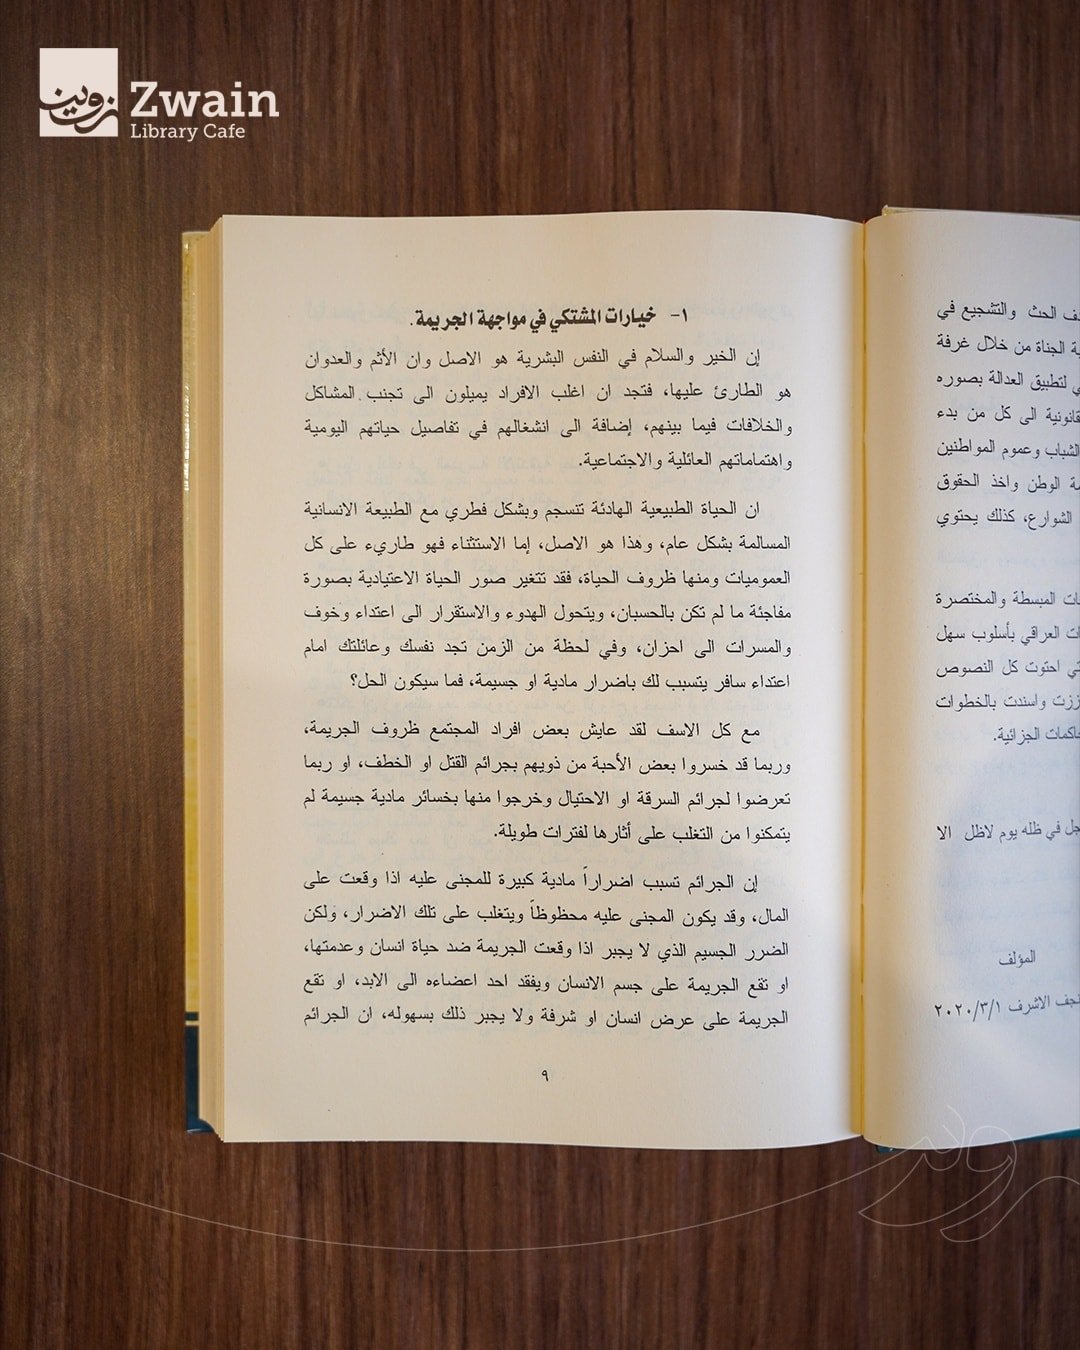 زوين
Zwain
Library Cafe
الحث والتشجيع في
الجناة من خلال غرفة
لتطبيق العدالة بصوره
الى كل من بدء
الشباب وعموم المواطنين
الوطن واخذ الحقوق
الشوارع، كذلك يحتوي
المبسطة والمختصرة
العراقي بأسلوب سهل
احتوت كل النصوص
واسندت بالخطوات
الجزائية.
في ظله يوم لاظل الا
المؤلف
الاشرف ٢٠٢٠/٣/١
١- خيارات المشتكي في مواجهة الجريمة.
إن الخير والسلام في النفس البشرية هو الاصل وان الأثم والعدوان
هو الطارئ عليها، فتجد ان اغلب الافراد يميلون الى تجنب المشاكل
والخلافات فيما بينهم، إضافة الى انشغالهم في تفاصيل حياتهم اليومية
واهتماماتهم العائلية والاجتماعية.
ان الحياة الطبيعية الهادئة تنسجم وبشكل فطري مع الطبيعة الانسانية
المسالمة بشكل عام، وهذا هو الاصل، إما الاستثناء فهو طاريء على كل
العموميات ومنها ظروف الحياة، فقد تتغير صور الحياة الاعتيادية بصورة
مفاجئة ما لم تكن بالحسبان، ويتحول الهدوء والاستقرار الى اعتداء وخوف
والمسرات الى احزان، وفي لحظة من الزمن تجد نفسك وعائلتك امام
اعتداء سافر يتسبب لك باضرار مادية او جسيمة، فما سيكون الحل؟
مع كل الاسف لقد عايش بعض افراد المجتمع ظروف الجريمة،
وربما قد خسروا بعض الأحبة من ذويهم بجرائم القتل او الخطف، او ربما
تعرضوا لجرائم السرقة او الاحتيال وخرجوا منها بخسائر مادية جسيمة لم
يتمكنوا من التغلب على أثارها لفترات طويلة.
إن الجرائم تسبب اضراراً مادية كبيرة للمجنى عليه اذا وقعت على
المال، وقد يكون المجنى عليه محظوظاً ويتغلب على تلك الاضرار، ولكن
الضرر الجسيم الذي لا يجبر اذا وقعت الجريمة ضد حياة انسان وعدمتها،
او تقع الجريمة على جسم الانسان ويفقد احد اعضاءه الى الابد، او تقع
الجريمة على عرض انسان او شرفة ولا يجبر ذلك بسهوله، ان الجرائم
٩